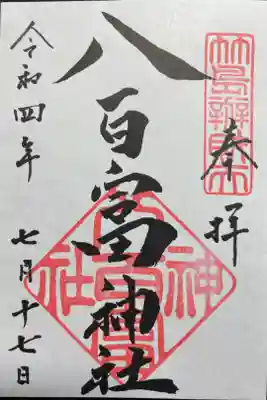 竹島辨財天
奉拝
八百富神社
八百富神社
令和四年
七月十七日